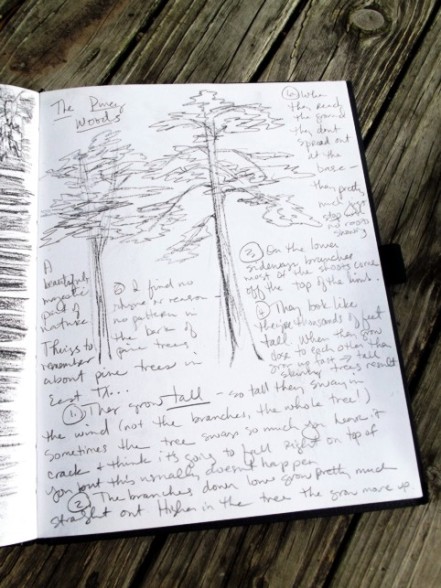 The Piney
Woods
A
beautiful,
majestic
part of
nature
Things to
remember
about pine trees in
East TX...
① They grow tall — so tall they sway in
the wind (not the branches, the whole tree!)
Sometimes the tree sways so much you hear it
crack & think its going to fall right on top of
you but this usually doesn't happen
② The branches down low grow pretty much
straight out. Higher in the tree the grow more up
③ On the lower
sideways branches
most of the shoots come
off the top of the
They look like
they're thousands of feet
tall. When they grow
close to each other they
grow up fast → tall
skinny trees result
I find no
rhyme or reason —
no pattern in
the bark of
pine trees
⑥ When
they reach
the ground
they don't
spread out
at the
base —
they pretty
much just
stop
no roots
showing